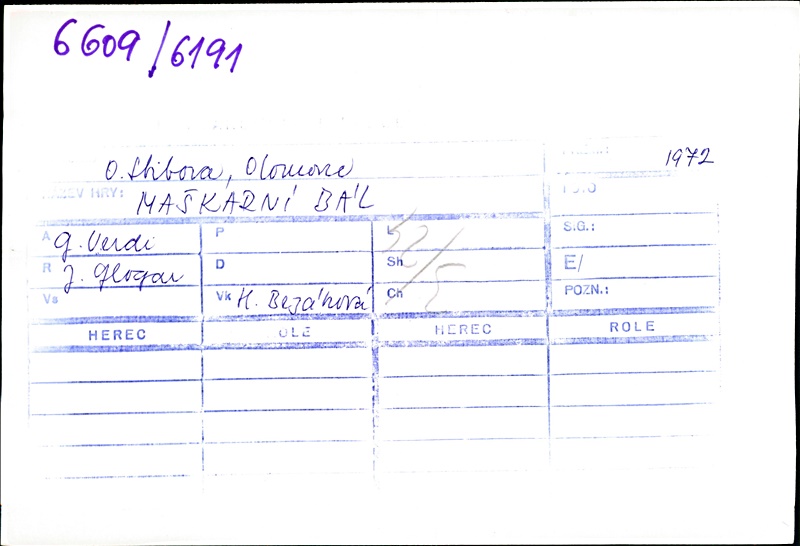 6609/6191
O. Stibora, Olomouc 1972
NÁZEV HRY: MAŠKARNÍ BÁL FOTO
A G. Verdi P L S.G.:
R J. Glogar D Sh E/
Vs Vk H. Bezáková Ch POZN.:
52/5
HEREC ROLE HEREC ROLE